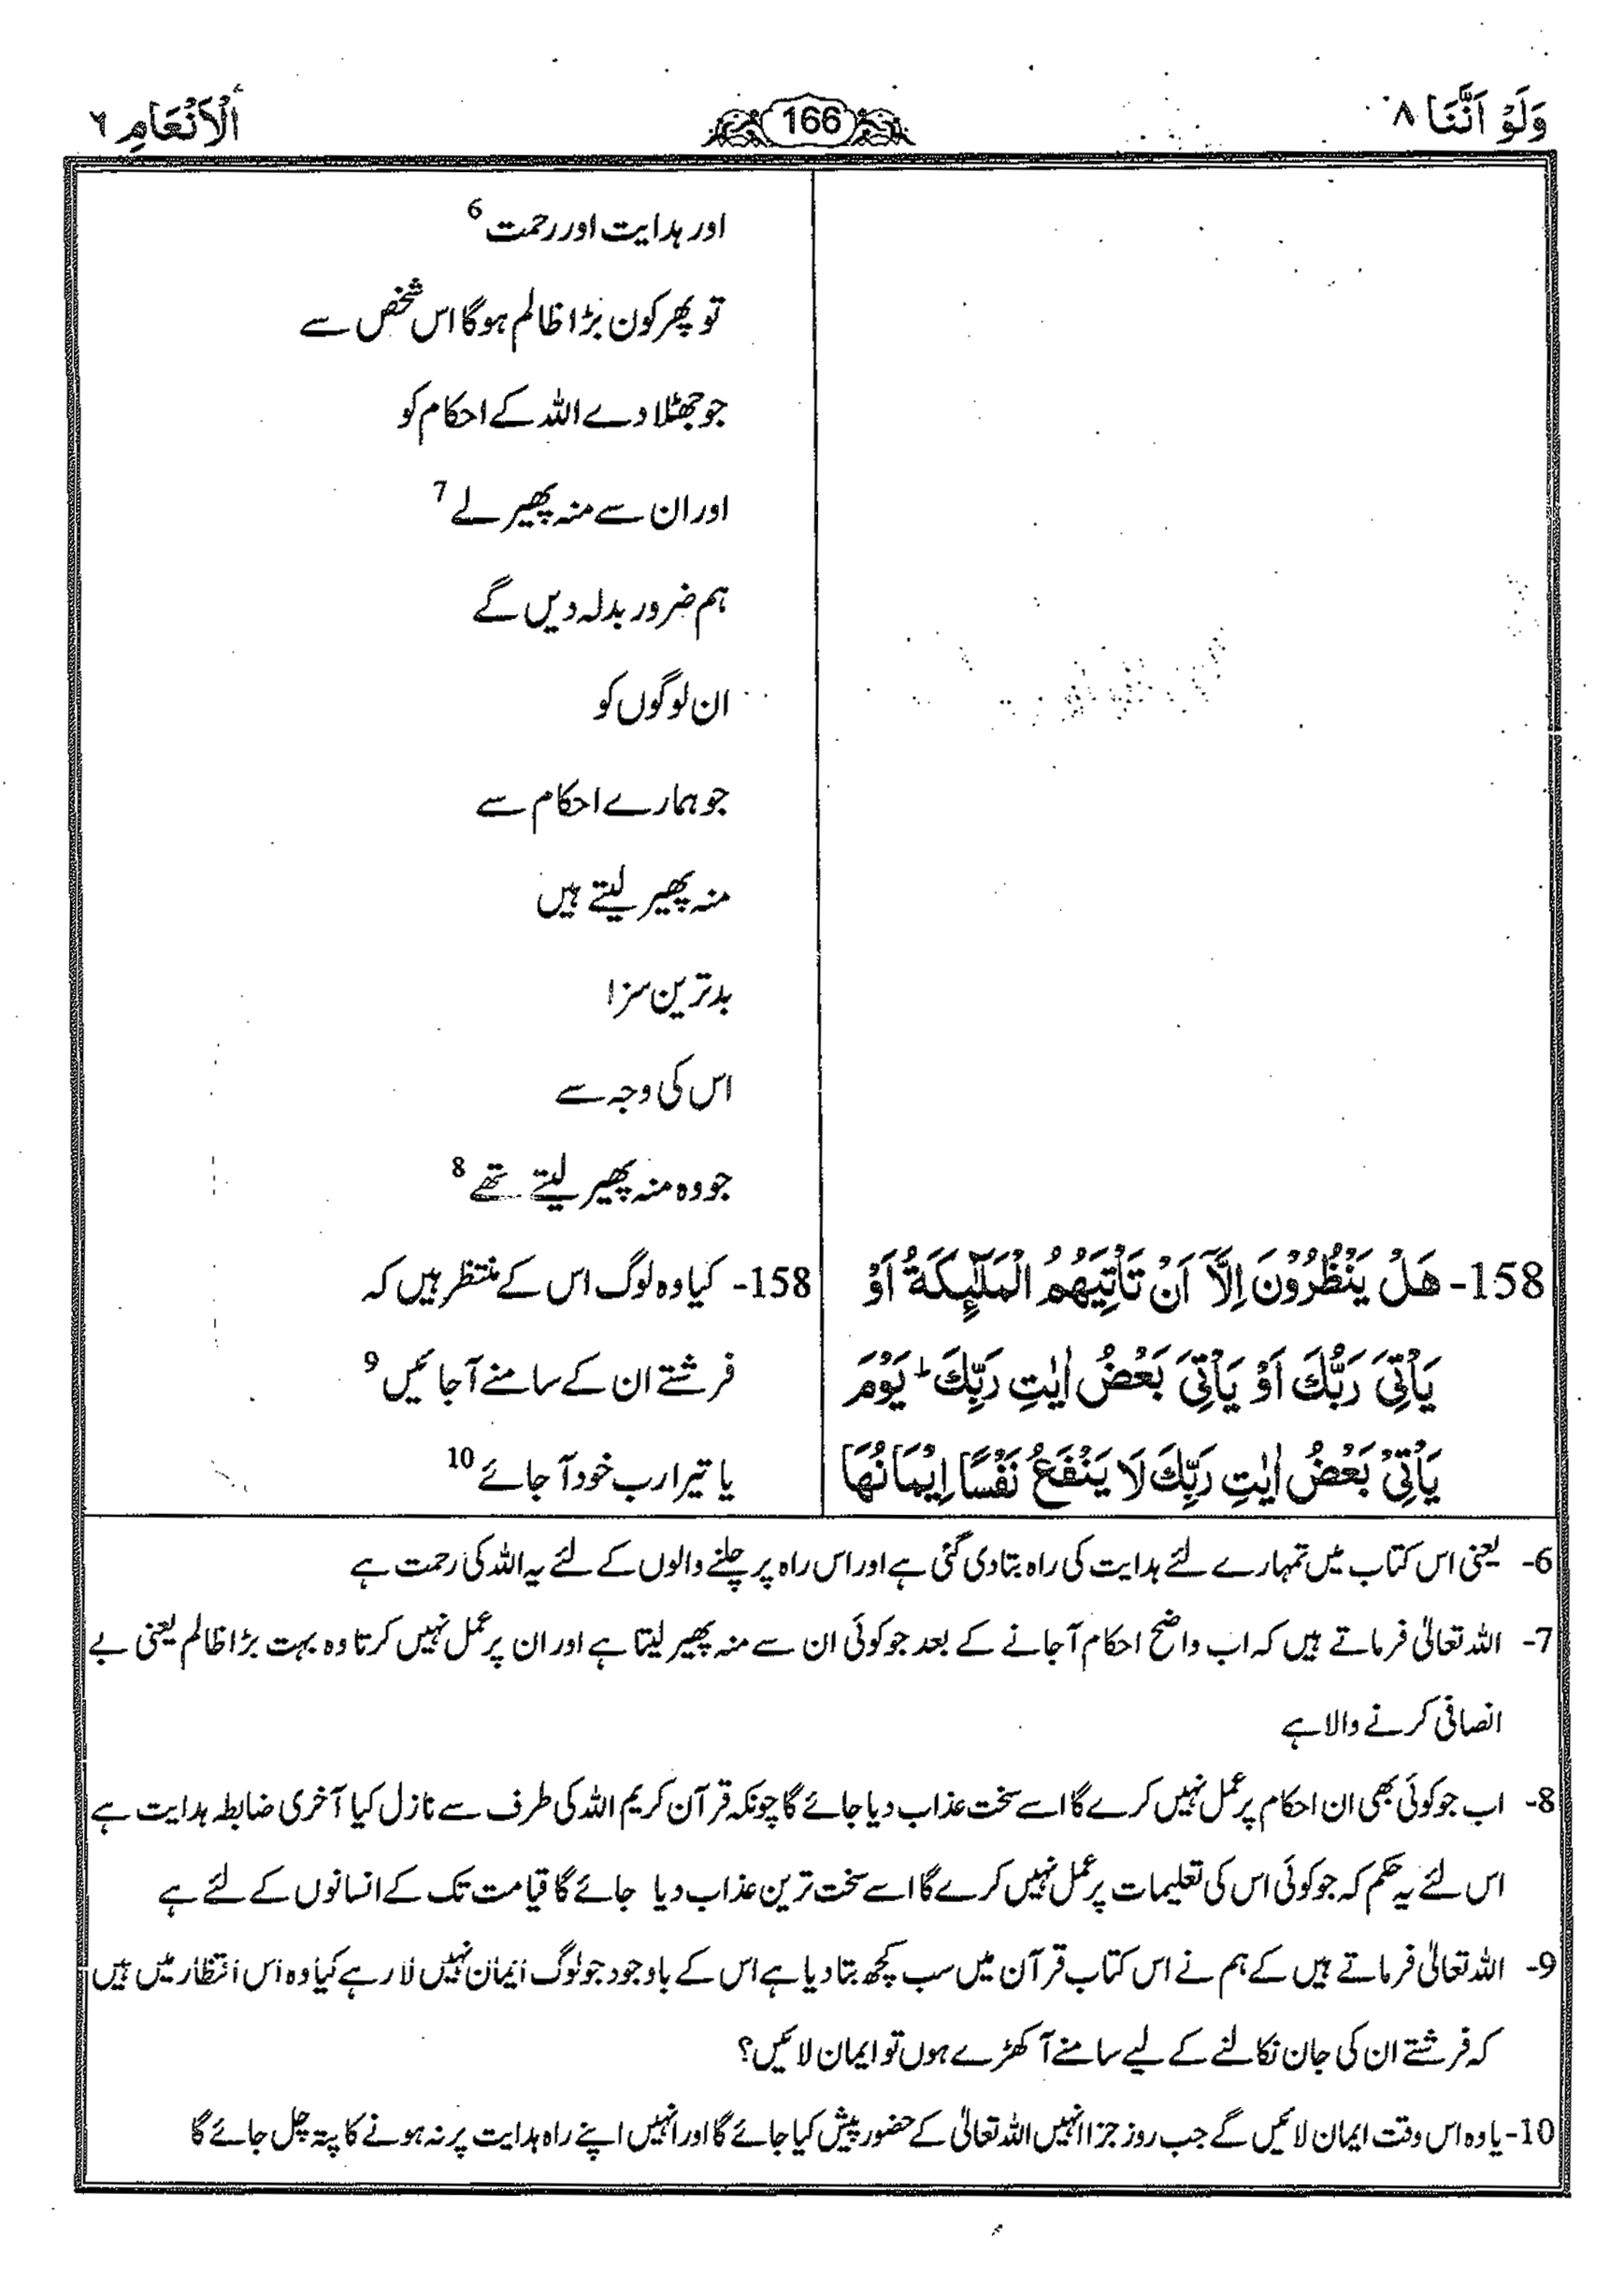 وَلَوْ اَنَّنَا ٨
166
اَلْاَنْعَامِ ٦
اور ہدایت اور رحمت 6
تو پھر کون بڑا ظالم ہوگا اس شخص سے
جو جھٹلا دے اللہ کے احکام کو
اور ان سے منہ پھیر لے 7
ہم ضرور بدلہ دیں گے
ان لوگوں کو
جو ہمارے احکام سے
منہ پھیر لیتے ہیں
بدترین سزا
اس کی وجہ سے
جو وہ منہ پھیر لیتے تھے 8
158- هَلْ يَنْظُرُوْنَ اِلَّآ اَنْ تَاْتِيَهُمُ الْمَلٰٓىِٕكَةُ اَوْ
يَاْتِيَ رَبُّكَ اَوْ يَاْتِيَ بَعْضُ اٰيٰتِ رَبِّكَ ؕ يَوْمَ
يَاْتِيْ بَعْضُ اٰيٰتِ رَبِّكَ لَا يَنْفَعُ نَفْسًا اِيْمَانُهَا
158- کیا وہ لوگ اس کے منتظر ہیں کہ
فرشتے ان کے سامنے آجائیں 9
یا تیرا رب خود آ جائے 10
6- یعنی اس کتاب میں تمہارے لئے ہدایت کی راہ بتا دی گئی ہے اور اس راہ پر چلنے والوں کے لئے یہ اللہ کی رحمت ہے
7- اللہ تعالیٰ فرماتے ہیں کہ اب واضح احکام آجانے کے بعد جو کوئی ان سے منہ پھیر لیتا ہے اور ان پر عمل نہیں کرتا وہ بہت بڑا ظالم یعنی بے
انصافی کرنے والا ہے
8- اب جو کوئی بھی ان احکام پر عمل نہیں کرے گا اسے سخت عذاب دیا جائے گا چونکہ قرآن کریم اللہ کی طرف سے نازل کیا آخری ضابطہ ہدایت ہے
اس لئے یہ حکم کہ جو کوئی اس کی تعلیمات پر عمل نہیں کرے گا اسے سخت ترین عذاب دیا جائے گا قیامت تک کے انسانوں کے لئے ہے
9- اللہ تعالیٰ فرماتے ہیں کے ہم نے اس کتاب قرآن میں سب کچھ بتا دیا ہے اس کے باوجود جو لوگ ایمان نہیں لا رہے کیا وہ اس انتظار میں ہیں
کہ فرشتے ان کی جان نکالنے کے لیے سامنے آ کھڑے ہوں تو ایمان لائیں؟
10- یا وہ اس وقت ایمان لائیں گے جب روز جزا انہیں اللہ تعالیٰ کے حضور پیش کیا جائے گا اور انہیں اپنے راہ ہدایت پر نہ ہونے کا پتہ چل جائے گا